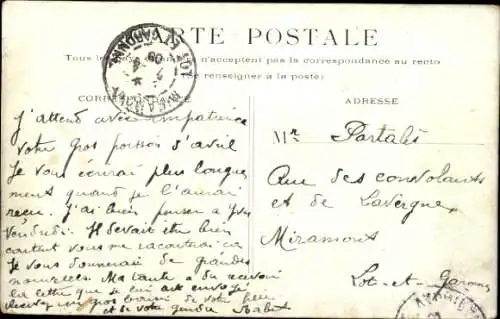 CARTE POSTALE
Tous les pays n'acceptent pas la correspondance au recto
(se renseigner à la poste)
CORRE
ADRESSE
LOT ET GARONNE
J'attend avec impatience
votre gros poisson d'avril
Je vous écrirai plus longue
ment quand je l'aurai
reçu. J'ai bien penser a
Vendredi. Il devait être bien
content vous me raconterai ca
Je vous donnerai de grandes
nouvelles. Ma tante a du recevoir
la lettre que je lui aie envoyé
Recevez un gros baiser de votre fille
et de votre gendre
Mr Portalès
Rue des convolants
et de Lavergne
Miramont
Lot-et-Garonne